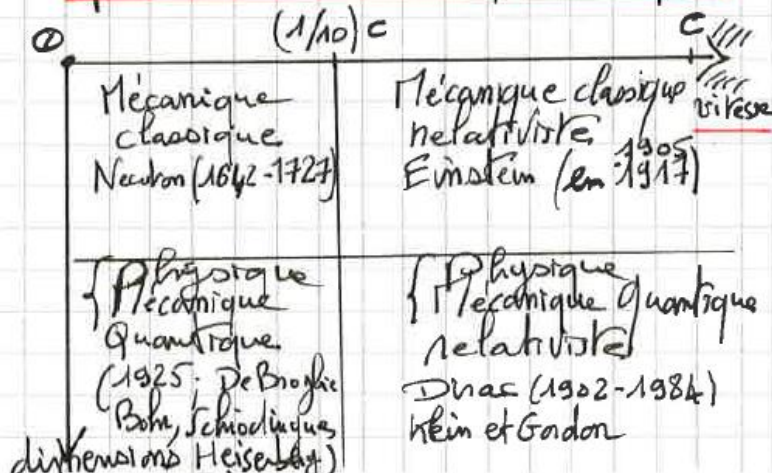 0
(1/10) c
c
vitesse
Mécanique
classique
Newton (1642-1727)
Mécanique classique
relativiste
1905
Einstein (en 1917)
{ Physique
Mécanique
Quantique
(1925, De Broglie
Bohr, Schrodinguer,
Heisenberg)
dimensions
{ Physique
Mécanique Quantique
relativiste
Dirac (1902-1984)
Klein et Gordon